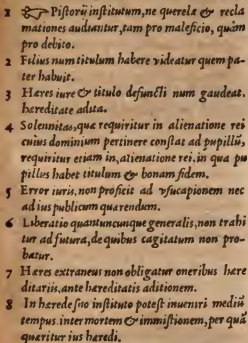 1 ☞ Piſtorū inſtitutum, ne querelæ & recla
mationes audiantur, tam pro maleficio, quàm
pro debito.
2 Filius num titulum habere videatur quem pa-
ter habuit.
3 Hæres iure & titulo defuncti num gaudeat,
hæreditate adita.
4 Solennitas, quæ requiritur in alienatione rei
cuius dominium pertinere conſtat ad pupillū,
requiritur etiam in, alienatione rei, in qua pu
pillus habet titulum & bonam fidem.
5 Error iuris, non proficit ad vſucapionem nec
ad ius publicum quærendum.
6 Liberatio quantuncunque generalis, non trahi
tur ad futura, de quibus cogitatum non pro-
batur.
7 Hæres extraneus non obligatur oneribus hære
ditariis, ante hæreditatis aditionem.
8 In hærede ſuo inſtituto poteſt inueniri mediū
tempus inter mortem & immiſtionem, per quā
quæritur ius hæredi.